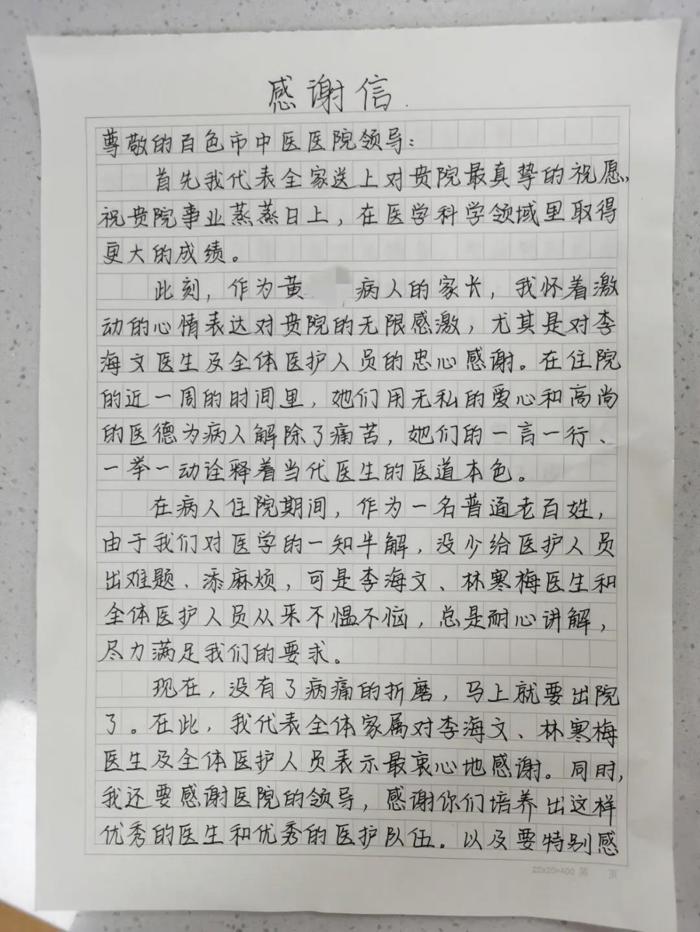 感谢信.
尊敬的百色市中医医院领导:
首先我代表全家送上对贵院最真挚的祝愿,
祝贵院事业蒸蒸日上,在医学科学领域里取得
更大的成绩。
此刻,作为黄 病人的家长,我怀着激
动的心情表达对贵院的无限感激,尤其是对李
海文医生及全体医护人员的忠心感谢。在住院
的近一周的时间里,她们用无私的爱心和高尚
的医德为病人解除了痛苦,她们的一言一行、
一举一动诠释着当代医生的医道本色。
在病人住院期间,作为一名普通老百姓,
由于我们对医学的一知半解,没少给医护人员
出难题、添麻烦,可是李海文、林寒梅医生和
全体医护人员从来不愠不恼,总是耐心讲解,
尽力满足我们的要求。
现在,没有了病痛的折磨,马上就要出院
了。在此,我代表全体家属对李海文、林寒梅
医生及全体医护人员表示最衷心地感谢。同时,
我还要感谢医院的领导,感谢你们培养出这样
优秀的医生和优秀的医护队伍。以及要特别感
20×20=400 第 页